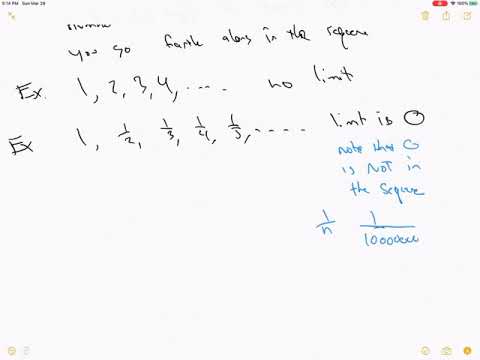 9:14 PM Sun Mar 29
100%
you go farther along in the sequence
Ex. 1, 2, 3, 4, .... no limit
Ex 1, 1/2, 1/3, 1/4, 1/5, .... limit is 0
note that 0
is not in
the sequence
1/n